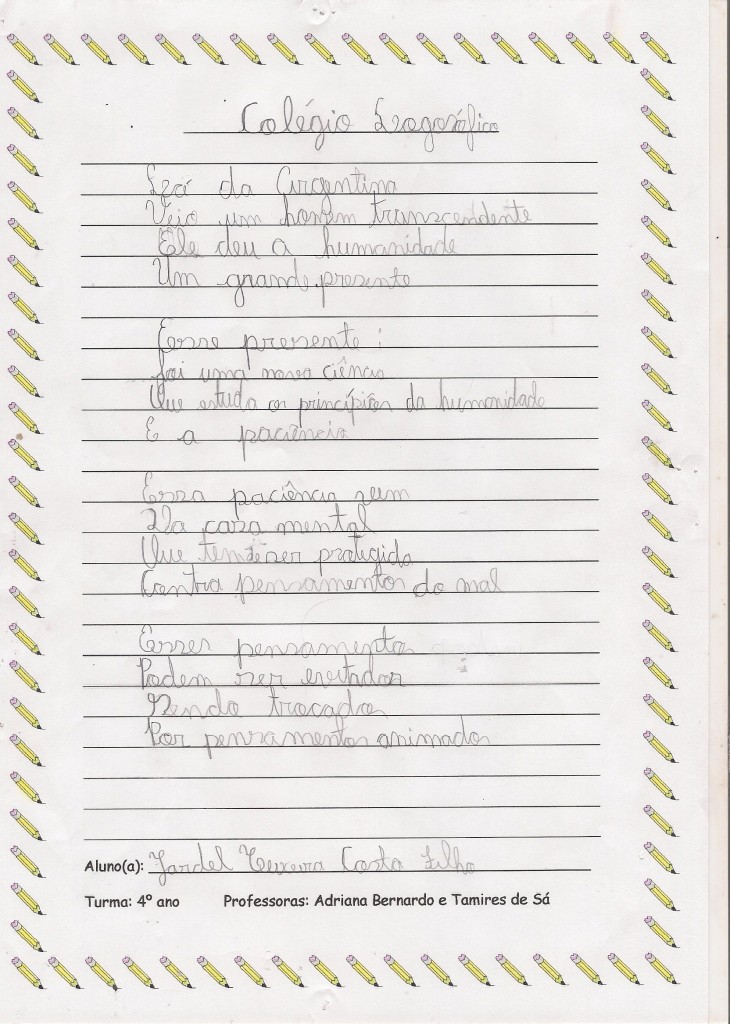 Colégio Geográfico
Lá da Argentina
Veio um homem transcendente
Ele deu a humanidade
Um grande presente
Esse presente:
Foi uma nova ciência
Que estuda os princípios da humanidade
E a paciência
Essa paciência vem
Da casa mental
Que tende ser protegida
Contra pensamentos do mal
Esses pensamentos
Podem ser evitados
Sendo trocados
Por pensamentos animados
Aluno(a): Jardel Teixeira Costa Filho
Turma: 4º ano Professoras: Adriana Bernardo e Tamires de Sá